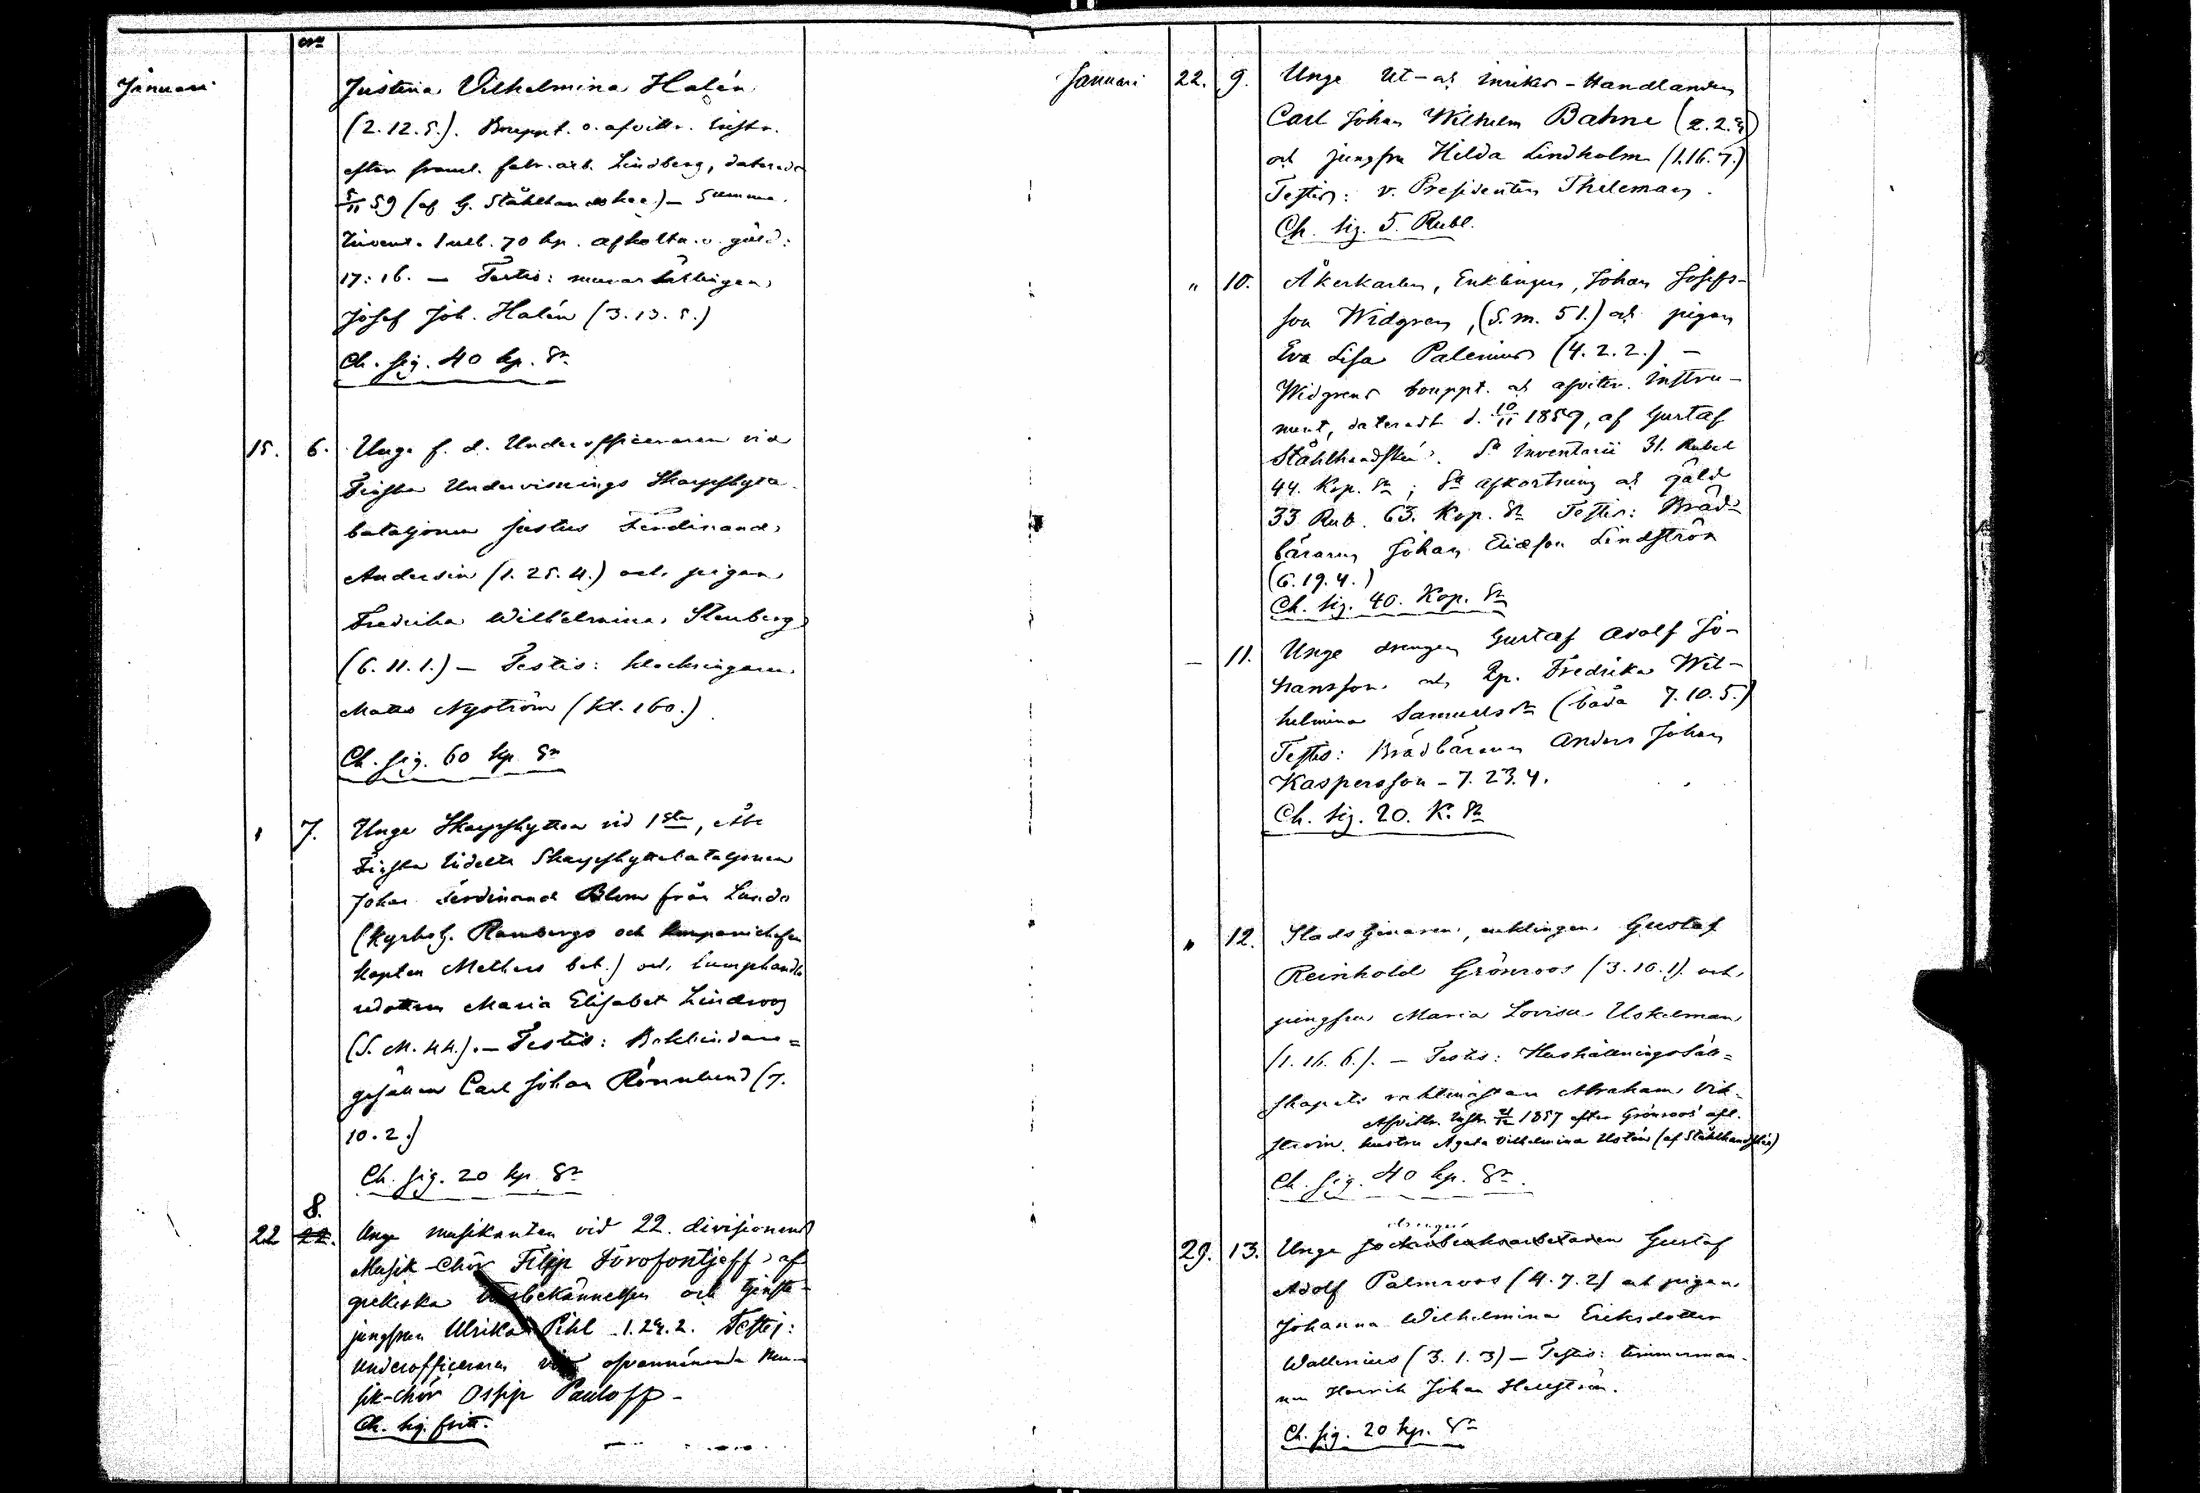 N:o
Januari Justina Vilhelmina Halén
(2.12.5.). Bouppt. o. afvittr. Instr.
efter framl. fabr. arb. Lindberg, daterade
5/11 59 (af G. Stålhandske.) — Summa.
Invent. 1 rub. 70 kp. afkoltn. o. gäld:
17:16. — Testis: murarlärlingen
Josef Joh. Halén (3.13.5.)
Ch. sig. 40 kp. Sr
15. 6. Unge f. d. Underofficeraren vid
Finska Undervisnings Skarpskytte
bataljonen Justus Ferdinand
Andersin (1.25.4.) och pigan
Fredrika Wilhelmina Stenberg
(6.11.1.) — Testis: klockringaren
Matts Nyström (kl. 160.)
Ch. sig. 60 kp Sr
" 7. Unge Skarpskytten vid 1sta, Åbo
Finska Indelta Skarpskyttebataljonen
Johan Ferdinand Blom från Lundo
(Kyrkoh. Rambergs och kompanichefen
kapten Mellers bet.) och
Maria Elisabet Lindroos
(S. M. 44.). — Testis: Bokbindare=
gesällen Carl Johan Rönnlund (7.
10.2.)
Ch. sig. 20 kp Sr
8.
22 22. Unge musikanten vid 22. divisionens
Musik-Chör Filip Forofontjeff, af
grekiska trosbekännelsen och tjenste-
jungfrun Ulrika Pihl 1.29.2. Testis:
Underofficeraren vid ofvannämnda Mu-
sik-chör Ossip Pauloff —
Ch. sig. fritt.
Januari 22. 9. Unge Ut- och inrikes-Handlanden
Carl Johan Wilhelm Bahne (2.2.9)
och jungfru Hilda Lindholm (1.16.7.)
Testis: v. Presidenten Thileman.
Ch. sig. 5. Rubl.
" 10. Åkerkarlen, Enklingen, Johan Josefs-
son Widgren, (S.m. 51.) och pigan
Eva Lisa Palenius (4.2.2.) —
Widgrens bouppt. och afvittr. Instru-
ment, dateradt d. 10/11 1859, af Gustaf
Stålhandske. Sa Inventarii 31. Rubel
44. Kop. Sr; Sa afkortning och gäld
33 Rub. 63. Kop. Sr Testis: Bräd-
bäraren Johan Ericsson Lindström
(6.19.4.)
Ch. sig. 40. Kop. Sr
— 11. Unge drengen Gustaf Adolf Jo-
hansson och Fredrika Wil-
helmina Samuelsdr (båda 7.10.5.)
Testis: Brädbäraren Anders Johan
Kaspersson — 7.23.4.
Ch. sig. 20. K. Sr
" 12. Stadstjenaren, enklingen Gustaf
Reinhold Grönroos (3.10.1). och
jungfrun Maria Lovisa Uskelman
(1.16.6.). — Testis: Hushållningssäll=
skapets vaktmästare Abraham Vik-
Afvittr. Instr. 1857 efter Grönroos' afl.
ström. hustru Agata Vilhelmina Ustén (af Stålhandske)
Ch. sig. 40 kp. Sr.
drengen
29. 13. Unge Gustaf
Adolf Palmroos (4.7.2) och pigan
Johanna Wilhelmina Eriksdotter
Wallenius (3.1.3) — Testis: timmerman-
nen Henrik Johan Hellström.
Ch. sig. 20 kp. Sr